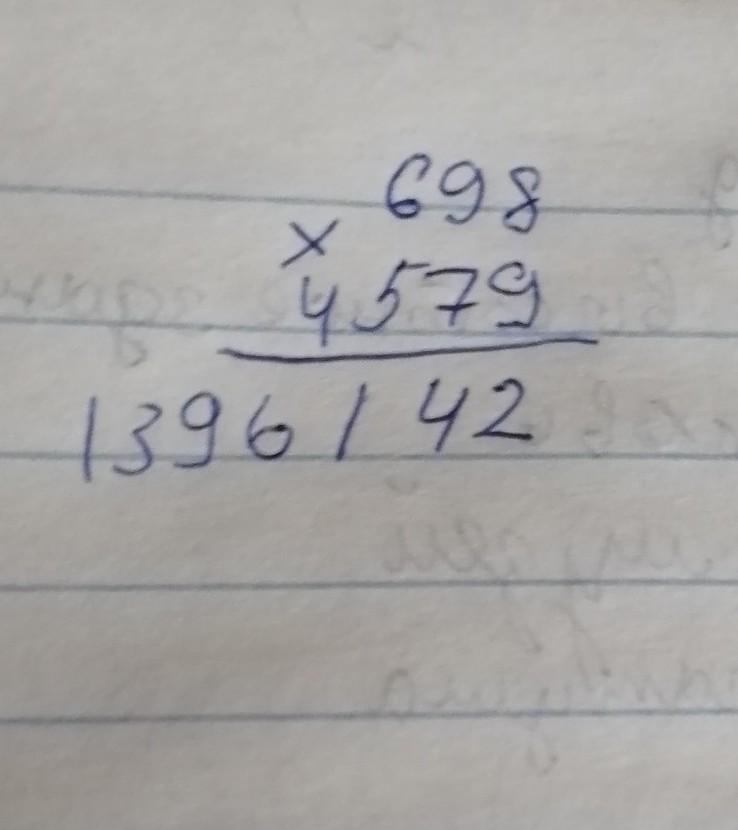 698
×
4579
1396142